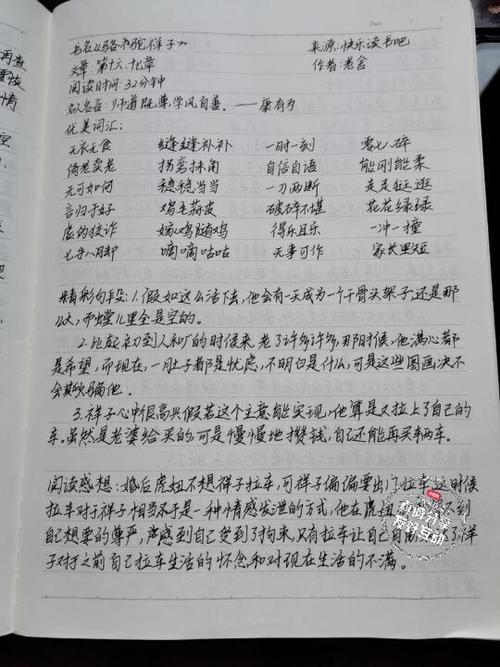 书名《骆驼祥子》 来源:快乐读书吧
文章:第十六、十七章 作者:老舍
阅读时间:32分钟
名人名言:师道既尊,学风自善。——康有为
优美词汇:
无衣无食 缝缝补补 一时一刻 零七八碎
倚老卖老 拐弯抹角 自信自语 能刚能柔
无可如何 稳稳当当 一刀两断 走走逛逛
言归于好 鸡毛蒜皮 破碎不堪 花花绿绿
虚的投诈 嫁鸡随鸡 得乐且乐 一冲一撞
七手八脚 嘀嘀咕咕 无事可作 家长里短
精彩句段:1.假如这么活下去,他会有一天成为一个干骨头架子还是那
么大,而膛儿里全是空的。
2.比起初到人和厂的时候来,老了许多许多,那时候,他满心都
是希望,而现在,一肚子都是忧虑,不明白是什么,可是这些图画决不
会欺骗他。
3.祥子心中很高兴假若这个主意能实现,他算是又拉上了自己的
车。虽然是老婆给买的,可是慢慢地攒钱,自己还能再买车两车。
阅读感想:婚后虎妞不想祥子拉车,可祥子偏偏要出门拉车,这时候
拉车对于祥子相当于是一种情感发泄的方式,他在虎妞 不到
自己想要的尊严,声感到自己受到了拘束,只有拉车让自己自由 了祥
子对于之前自己拉车生活的怀念和对现在生活的不满。
有种分享
友好互动